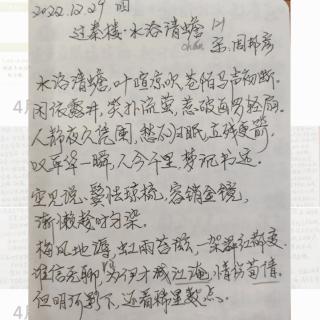 2022.12.29 四
过秦楼·水浴清蟾
chán
宋.周邦彦
水浴清蟾,叶喧凉吹,巷陌马声初断.
闲依露井,笑扑流萤,惹破画罗轻扇.
人静夜久凭阑,愁不归眠,立残更箭.
叹年华一瞬,人今千里,梦沉书远.
空见说、鬓怯琼梳,容销金镜,
渐懒趁时匀染.
梅风地溽,虹雨苔滋,一架舞红都变.
谁信无聊,为伊才减江淹,情伤荀倩.
但明河影下,还看稀星数点.